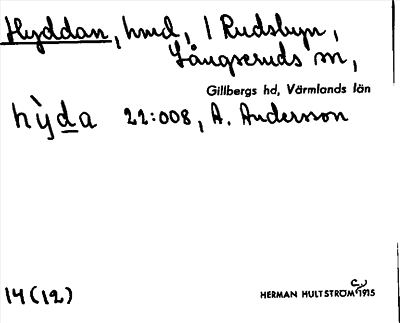 Hyddan, hmd, / Rudsbyn,
Långseruds sn,
Gillbergs hd, Värmlands län
hỳda 22:008, A. Andersson
14 (12)
HERMAN HULTSTRÖM 1915